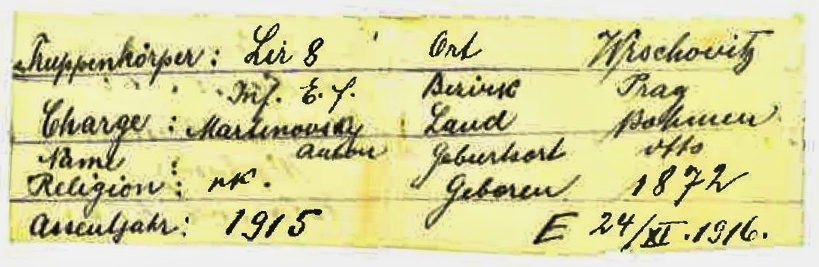 Truppenkörper: Lir 8 Ort Wrschovitz
Inf. E. f. Bezirk Prag
Charge: Martinovsky Land Böhmen
Name: Anton Geburtsort otto
Religion: rk. Geboren 1872
Assentjahr: 1915 E 24/XI.1916.